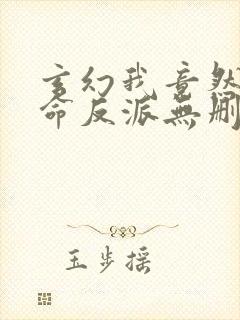 玄幻我竟然
命反派无删
玉步摇